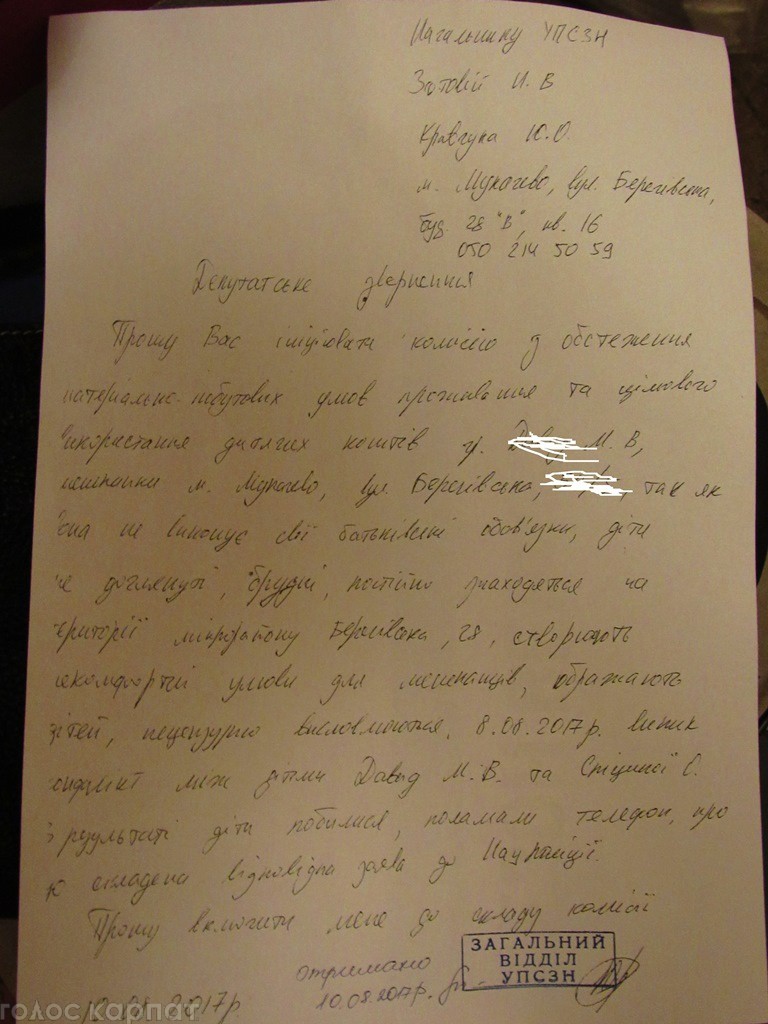 Начальнику УПСЗН
Зотовій И. В
Кравчука Ю.О.
м. Мукачево, вул. Берегівська,
буд. 28 "В", кв. 16
050 214 50 59
Депутатське звернення
Прошу Вас ініціювати комісію з обстеження
матеріально-побутових умов проживання та цільового
використання дитячих коштів гр. М. В,
мешканки м. Мукачево, вул. Берегівська, так як
вона не виконує свої батьківські обов'язки, діти
не доглянуті, "брудні", постійно знаходяться на
території мікрорайону Берегівська, 28, створюють
некомфортні умови для мешканців, ображають
дітей, нецензурно висловлюються. 8.08.2017р. виник
конфлікт між дітьми Давид М.В. та Спіциної С.
в результаті діти побилися, поламали телефон, про
що складена відповідна заява до Нацполіції.
Прошу включити мене до складу комісії
ЗАГАЛЬНИЙ
ВІДДІЛ
УПСЗН
отримано
10.08.2017р.
10.08.2017р
голос карпат